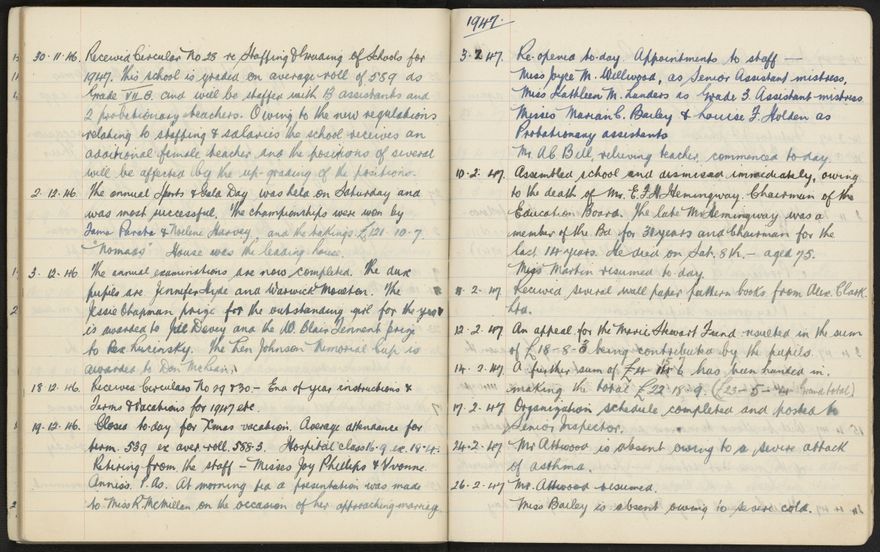 30·11·46. Received Circular No 28 re Staffing & Grading of Schools for
1947. This school is graded on average roll of 589 as
Grade VII B. and will be staffed with 13 assistants and
2 probationary teachers. Owing to the new regulations
relating to staffing & salaries the school receives an
additional female teacher and the positions of several
will be affected by the up-grading of the positions.
2·12·46. The annual Sports & Gala Day was held on Saturday and
was most successful. The championships were won by
& Noeline Harvey, and the takings £121·10·7.
"Nomads" House was the leading house.
3·12·46. The annual examinations are now completed. The dux
pupils are Jennifer Hyde and Warwick. The
Jessie Chapman prize for the outstanding girl for the year
is awarded to Jill Davey and the W. Blair Tennent prize
to Lucinsky. The Len Johnson Memorial Cup is
awarded to Don McLean.
18·12·46. Received Circulars No 29 & 30 – End of year instructions &
Terms & Vacations for 1947 etc.
19·12·46. Closed to-day for Xmas vacation. Average attendance for
term. 539 ex aver. roll. 588·3. Hospital class 16·9 ex. 18·4.
Retiring from the staff – Misses Joy Phillips & Yvonne
Anniss. P. As. At morning tea a presentation was made
to Miss R. McMillan on the occasion of her approaching marriage
1947.
3·2·47. Re-opened to-day. Appointments to staff —
Miss Joyce M. Wellwood, as Senior Assistant mistress,
Miss Kathleen M. Landers as Grade 3. Assistant mistress
Misses Marian C. Bailey & Louise F. Holden as
Probationary assistants
Mr. A C Bell, relieving teacher, commenced to-day.
10·2·47. Assembled school and dismissed immediately, owing
to the death of Mr. E. F. H. Hemingway. Chairman of the
Education Board. The late Mr Hemingway was a
member of the Bd. for 30 years and Chairman for the
last 14 years. He died on Sat. 8th. – aged 75.
Miss Martin resumed to-day.
11·2·47 Received several wall paper pattern books from Alex. Clark
Ltd.
12·2·47 An appeal for the Marie Stewart Fund resulted in the sum
of £18-8-3 being contributed by the pupils.
14·2·47 A further sum of £4 6 has been handed in.
making the total £22·18·9. (£23-5-4 Grand total)
17·2·47 Organization schedule completed and posted to
Senior Inspector.
24·2·47 Mr Attwood is absent owing to a severe attack
of asthma.
26·2·47 Mr. Attwood resumed.
Miss Bailey is absent owing to severe cold.